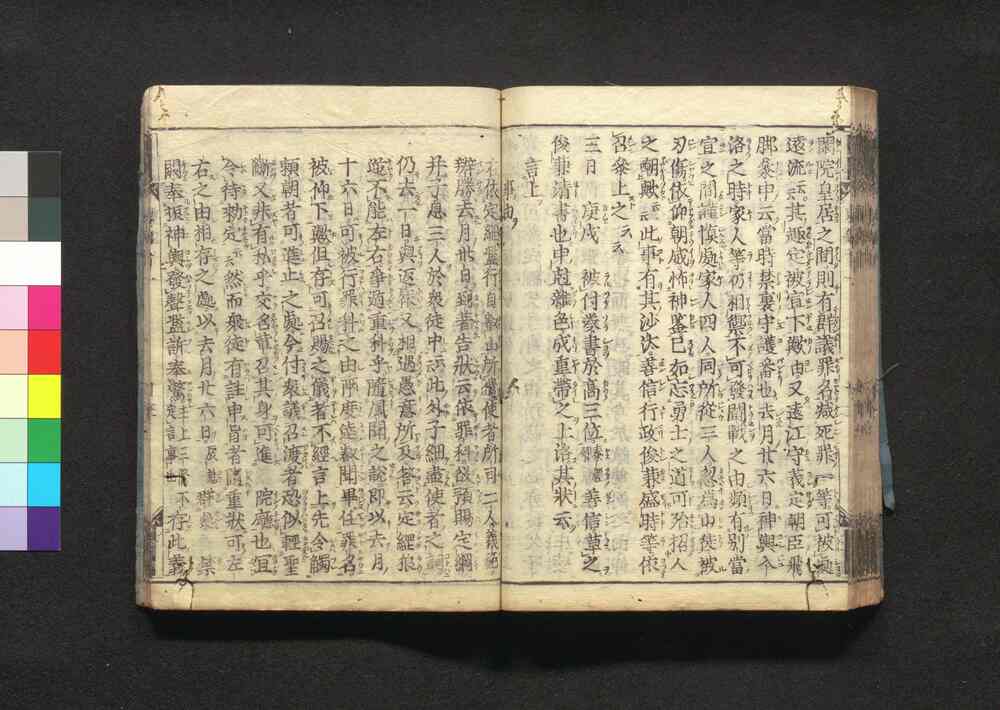 閑院皇居之間則有群議罪名减死罪一等可被處
遠流云云其趣定被宣下歟由又遠江守義定朝臣飛
脚參申云當時禁裏守護番也去月廿六日神輿入
洛之時家人等彷相禦不可發鬪戰之由頻有別當
宣之間謹愼處家人四人同所從三人忽爲山徒被
刃傷依仰朝威怖神鑒已如忘勇士之道可殆招人
之嘲歟云云此事有其沙汰善信行政俊兼盛時等依
召參上之云云
三日 庚戌 被付委書於高三位 善信草之
俊兼清書也中 雜色成重帶之上洛其狀云
言上
事由
右依定綱 行自 山所 使者所司二人義範
辨勝去月廿日到 告狀云依罪科欲預賜定綱
并子息三人於衆徒中云云此外子細盡使者之詞
仍去一日與返報又相遇愚意所及答云定綱狼
藉不能左右爭遁重科乎隨風聞之說即以去月
十六日可被行罪科之由兩度達 聞畢任罪名
被仰下歟但存可召賜之儀者不經言上先令觸
賴朝者可進止之處令付衆議召渡者恐似輕聖
斷又非有私乎交名輩召其身可進 院廳也且
令待勅定云云然而衆徒有註申旨者隨重狀可左
右之由相存之處以去月廿六日 某
鬪奉振神輿發聲 訴奉驚 上 不存此義